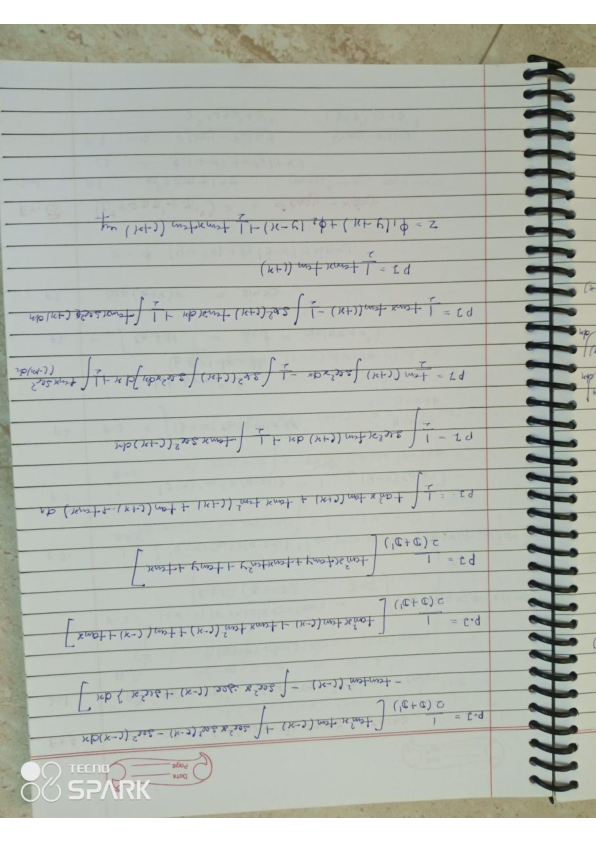 Page
Date
P.I = 1/2(D+D') [ tan²x tan(c-x) + ∫ sec²x sec²(c-x) - sec²(c-x) dx
- tan tan²(c-x) - ∫ sec²x sec(c-x) + sec²x } dx ]
P.I = 1/2(D+D') [ tan²x tan(c-x) + tanx tan²(c-x) + tan(c-x) + tanx ]
PI = 1/2(D+D') [ tan²x tany + tanx tan²y + tany + tanx ]
PI = 1/2 ∫ tan²x tan(c+x) + tanx tan²(c+x) + tan(c+x) + tanx) dx
PI = 1/2 ∫ sec²x tan(c+x) dx + 1/2 ∫ tanx sec²(c+x) dx
PI = tan(c+x)/2 ∫ sec²x dx - 1/2 ∫ sec²(c+x) ∫ sec²x dx } dx + 1/2 ∫ tanx sec²(c+x) dx
PI = 1/2 tanx tan(c+x) - 1/2 ∫ sec²(c+x) tanx dx + 1/2 ∫ tanx sec²(c+x) dx
PI = 1/2 tanx tan(c+x)
z = Φ₁(y+x) + Φ₂(y-x) + 1/2 tanx tan(c+x)
TECNO
SPARK